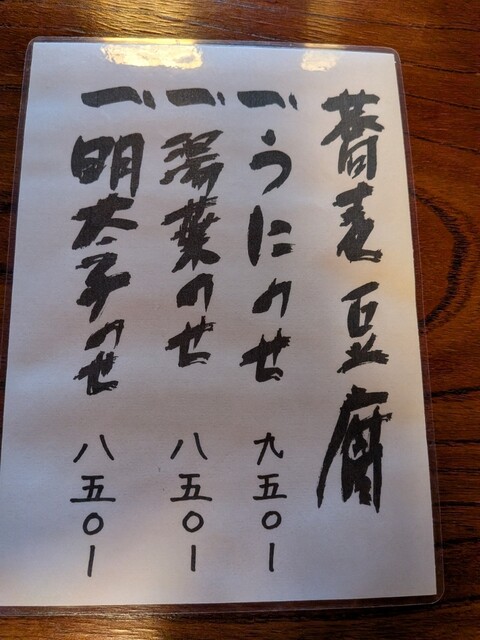 蕎麦豆腐
一、うにのせ 九五〇ー
一、湯葉のせ 八五〇ー
一、明太子のせ 八五〇ー